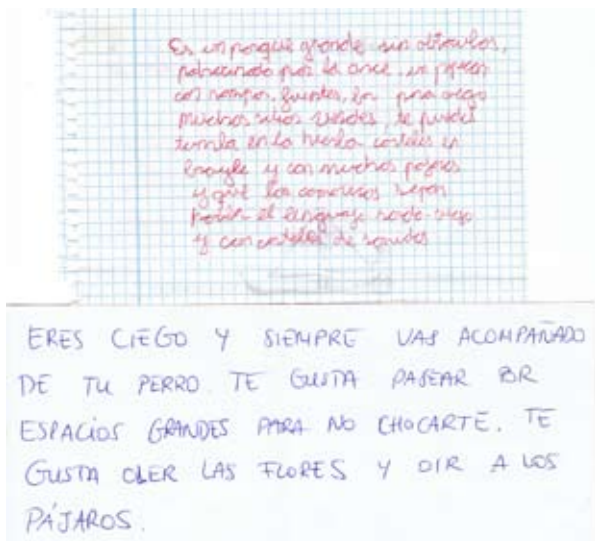 Es un parque grande sin obstáculos,
patrocinado por la once, un parque
con rampas, fuentes, para ciego
muchos sitios verdes, te puedes
en la hierba carteles en
braayle y con muchos pajaros
y que los
el lenguaje sordo-ciego
y con carteles de sonidos
ERES CIEGO Y SIEMPRE VAS ACOMPAÑADO
DE TU PERRO. TE GUSTA PASEAR POR
ESPACIOS GRANDES PARA NO CHOCARTE. TE
GUSTA OLER LAS FLORES Y OIR A LOS
PÁJAROS.